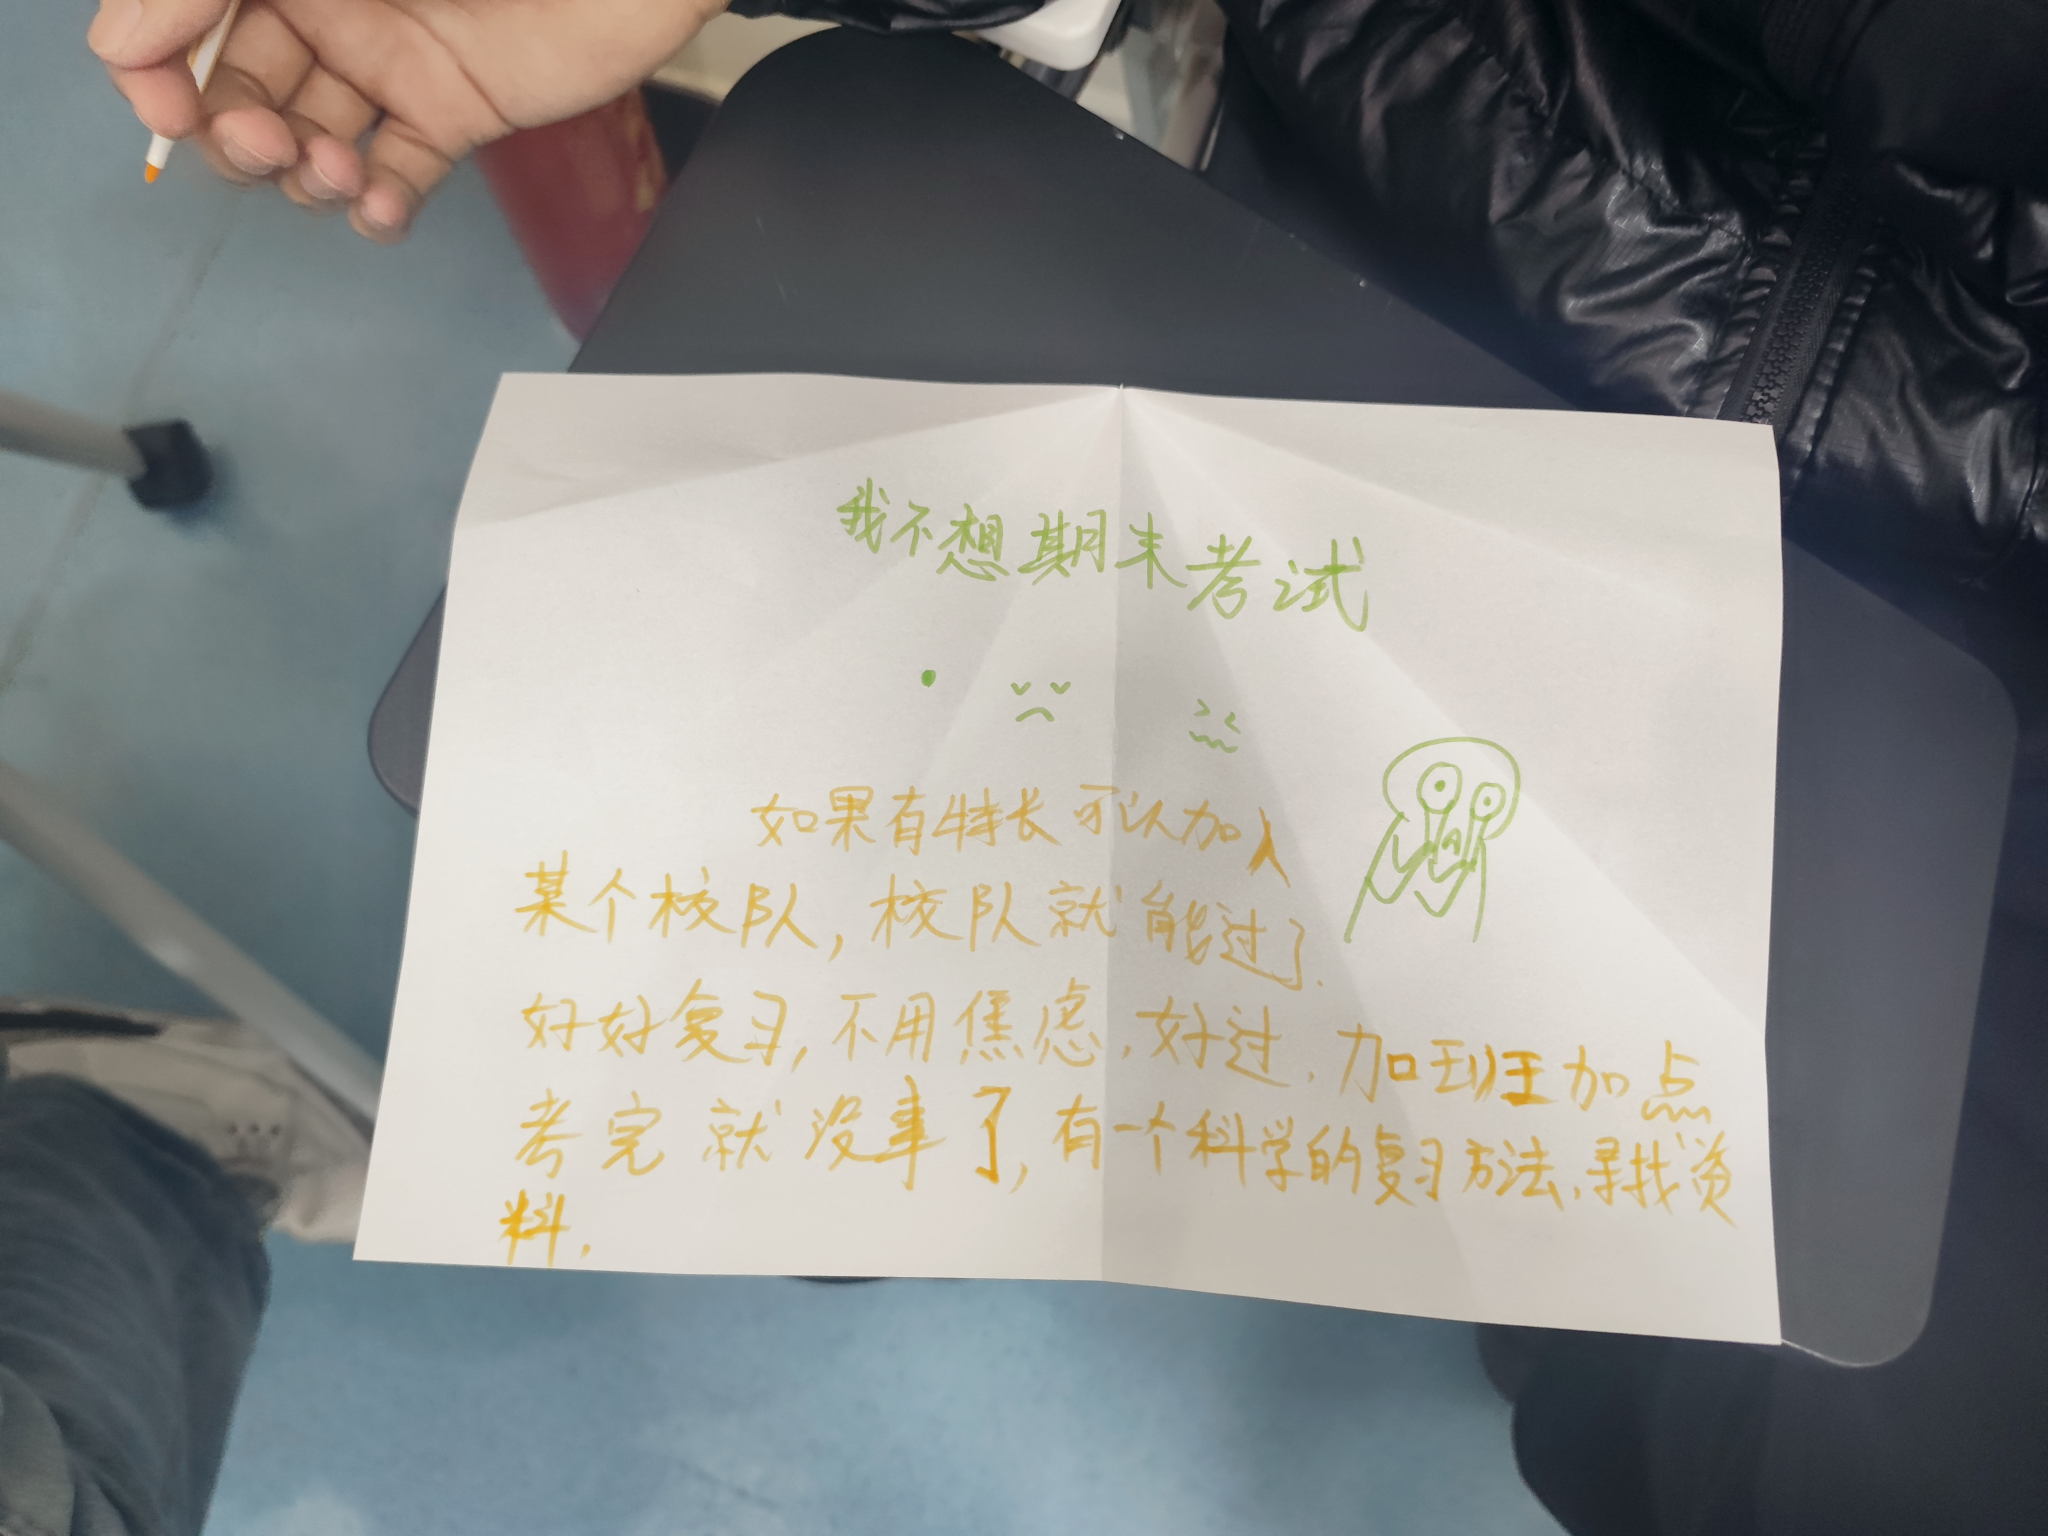 我不想期末考试
如果有特长可以加入
某个校队,校队就能过了.
好好复习,不用焦虑,好过,加班加点
考完就没事了,有一个科学的复习方法,寻找资
料,